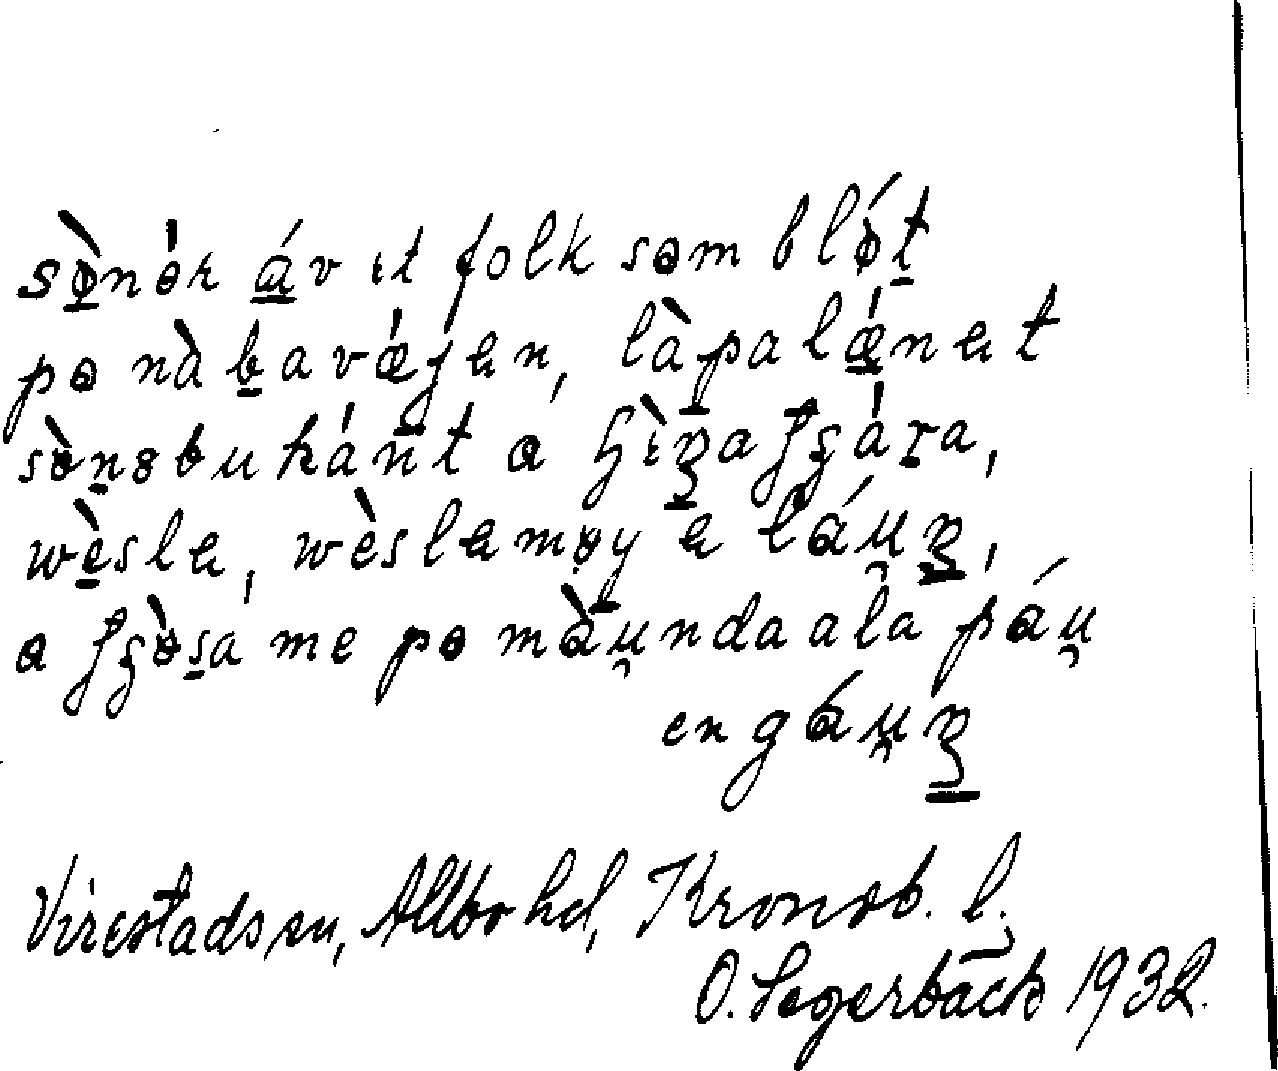 sø̀nər áv ɪt folk sɵm blø̀t
pɵ nàbavǽjen, làpalǽnet
sø̀nsbukánt ɵ hìŋaʃʂára,
wèsle, wèslemɵy e láu̯ŋ,
ɵ ʃʂɵ̀sá me pɵ mɵ̀u̯nda ala páu̯
en gáu̯ŋ
Virestads sn, Allbo hd, Kronob. l.
O. Segerbäck 1932.